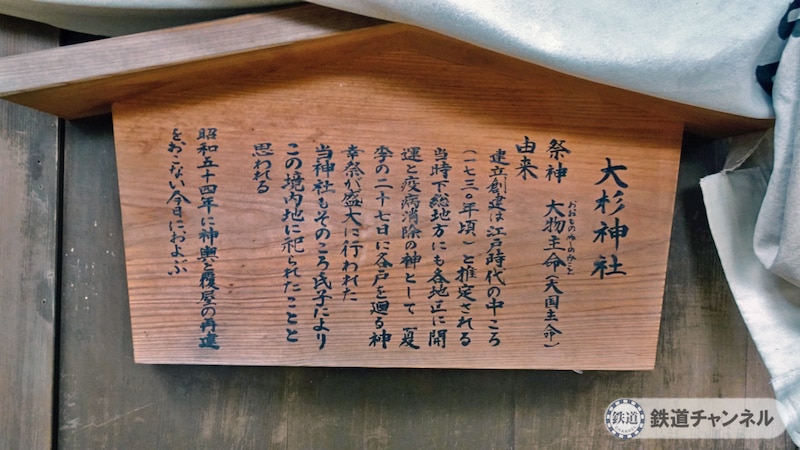 大杉神社
祭神　大物主命（大国主命）
おおものぬしのみこと
由来
建立創建は江戸時代の中ころ
（一七三〇年頃）と推定される
当時下総地方にも各地区に開
運と疫病消除の神として　夏
季の二十七日に各戸を廻る神
幸祭が盛大に行われた
当神社もそのころ氏子により
この境内地に祀られたことと
思われる
昭和五十四年に神輿と覆屋の再建
をおこない今日におよぶ
鉄道
鉄道チャンネル